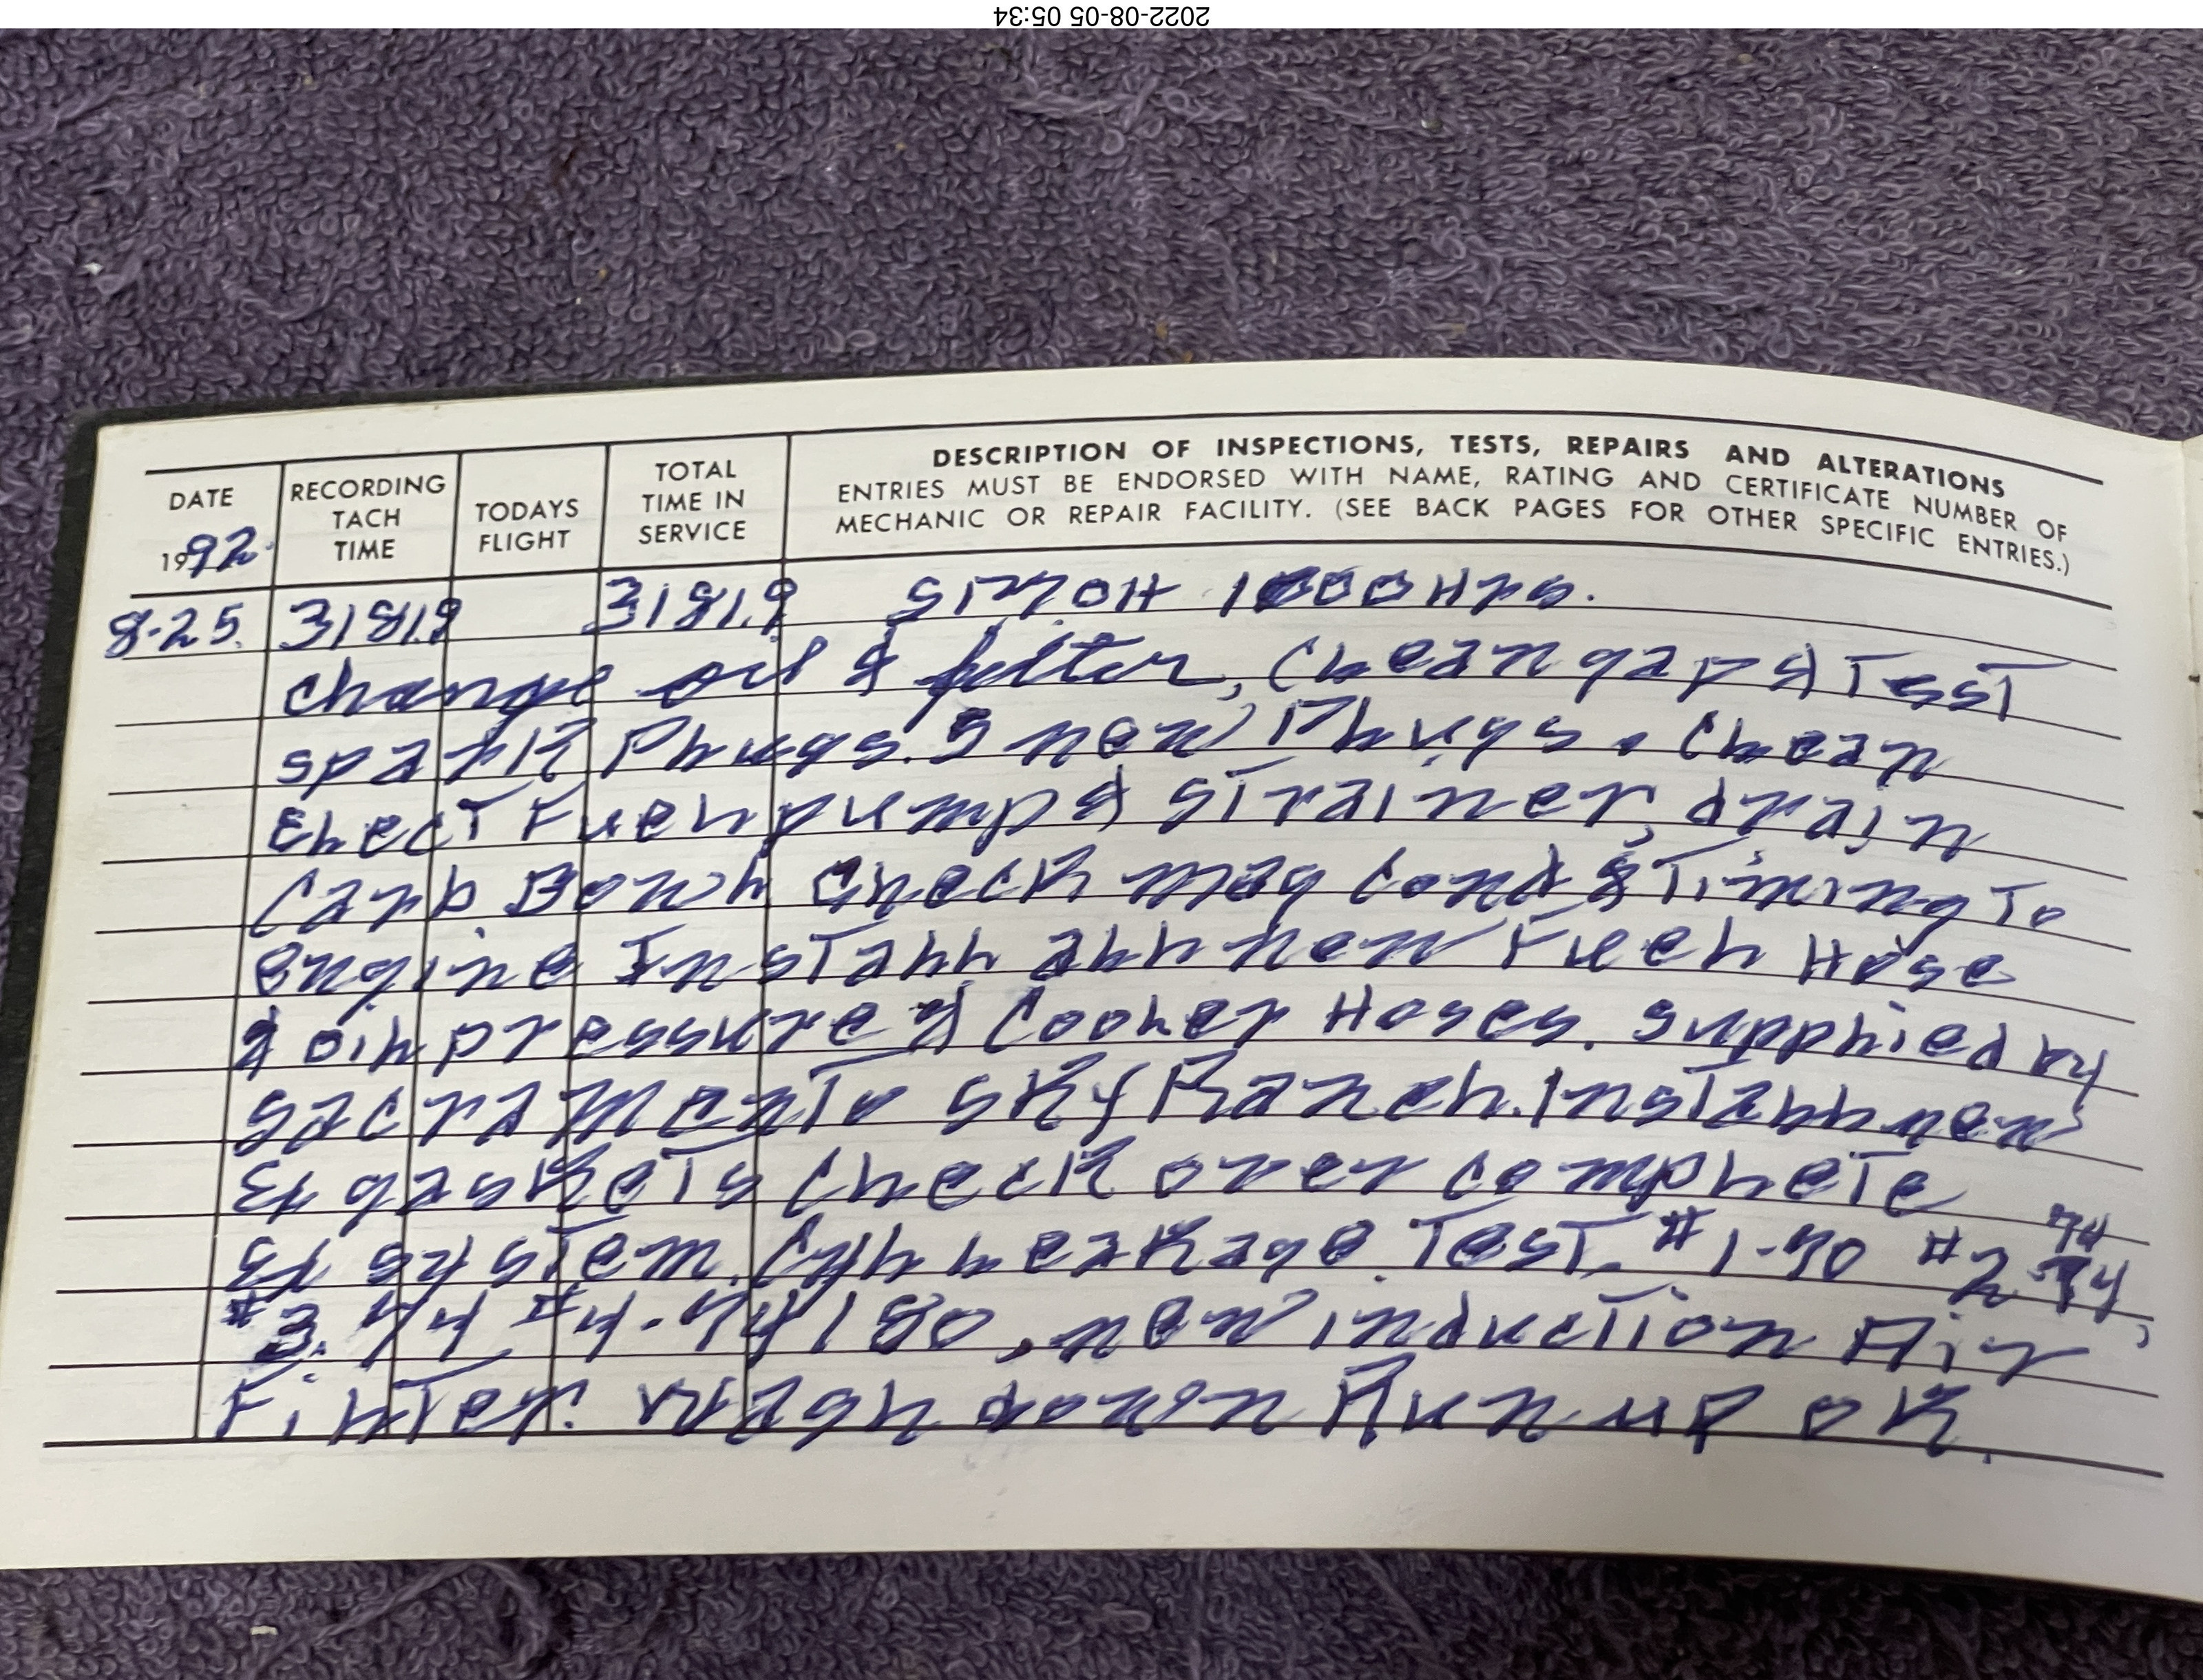 2022-08-05 05:34
DESCRIPTION OF INSPECTIONS, TESTS, REPAIRS AND ALTERATIONS
ENTRIES MUST BE ENDORSED WITH NAME, RATING AND CERTIFICATE NUMBER OF
MECHANIC OR REPAIR FACILITY. (SEE BACK PAGES FOR OTHER SPECIFIC ENTRIES.)
DATE
1992
RECORDING
TACH
TIME
TODAYS
FLIGHT
TOTAL
TIME IN
SERVICE
8-25. 3181.9 3181.9 SMOH 1000 Hrs.
change oil & filter, Clean gap & Test
spark Plugs. 5 new Plugs. Clean
Elect Fuel pump & strainer, drain
Carb Bowl Check mag cond & Timing To
engine Install all new Fuel Hose
& oil pressure & Cooler Hoses. supplied by
sacramento sky Ranch. Install new
Ex gaskets Check over complete
Ex system. Cyl Leakage Test. #1-70 #2 74
#3. 74 #4-74/80, new induction Air
Filter. wash down Run up ok.